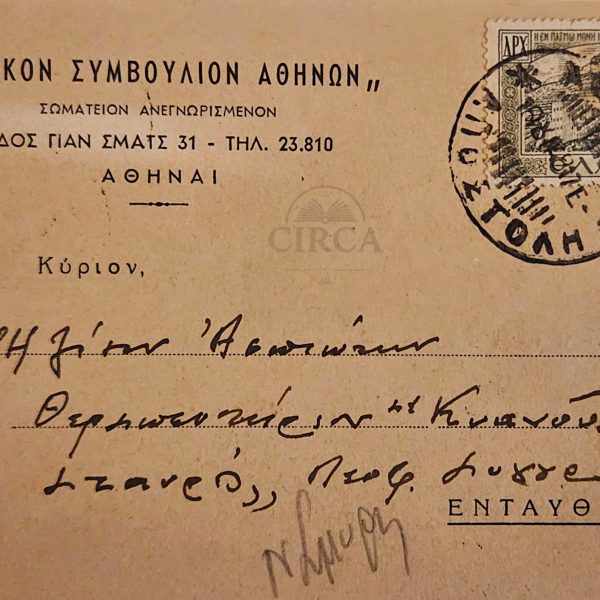 ΚΟΝ ΣΥΜΒΟΥΛΙΟΝ ΑΘΗΝΩΝ„
ΣΩΜΑΤΕΙΟΝ ΑΝΕΓΝΩΡΙΣΜΕΝΟΝ
ΔΟΣ ΓΙΑΝ ΣΜΑΤΣ 31 - ΤΗΛ. 23.810
ΑΘΗΝΑΙ
ΔΡΧ
Η ΕΝ ΠΑΤΜΩ ΜΟΝΗ
ΑΠΟΣΤΟΛΗ
CIRCA
Κύριον,
Ἀσωπιώτην
Θεραπευτήριον Κυανοῦς
Σταυρός, Λεωφ. Συγγρ
ΕΝΤΑΥΘ
Ν Σμύρνη